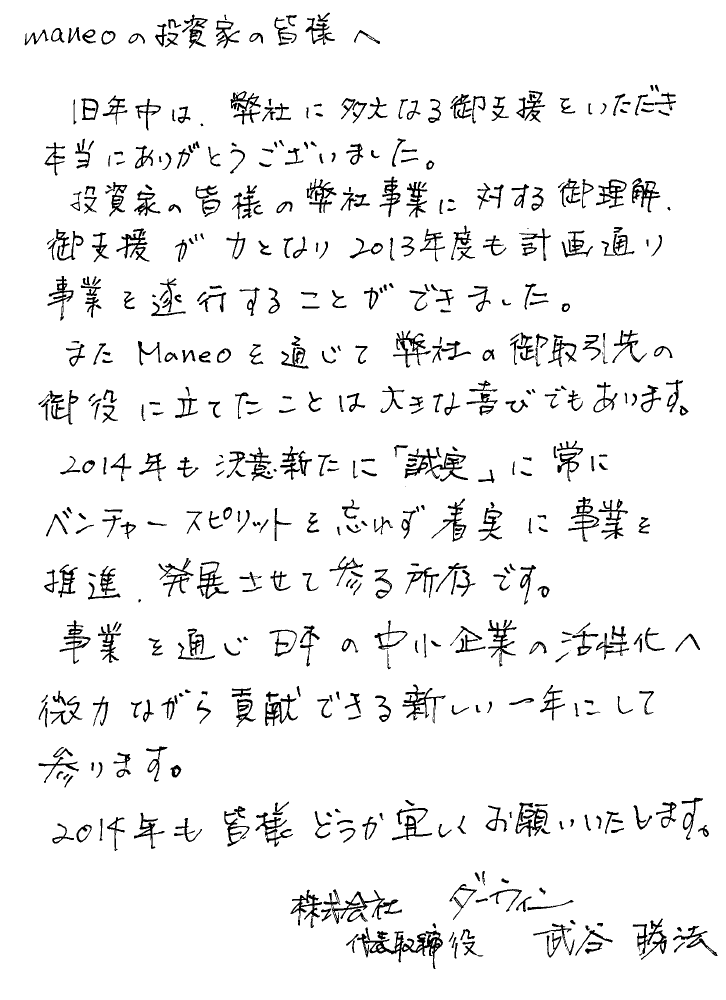 maneoの投資家の皆様へ
旧年中は、弊社に多大なる御支援をいただき
本当にありがとうございました。
投資家の皆様の弊社事業に対する御理解、
御支援が力となり2013年度も計画通り
事業を遂行することができました。
またManeoを通じて弊社の御取引先の
御役に立てたことは大きな喜びでもあります。
2014年も決意新たに「誠実」に常に
ベンチャースピリットを忘れず着実に事業を
推進、発展させて参る所存です。
事業を通じ日本の中小企業の活性化へ
微力ながら貢献できる新しい一年にして
参ります。
2014年も皆様どうか宜しくお願いいたします。
株式会社 ダーウィン
代表取締役 武谷勝法